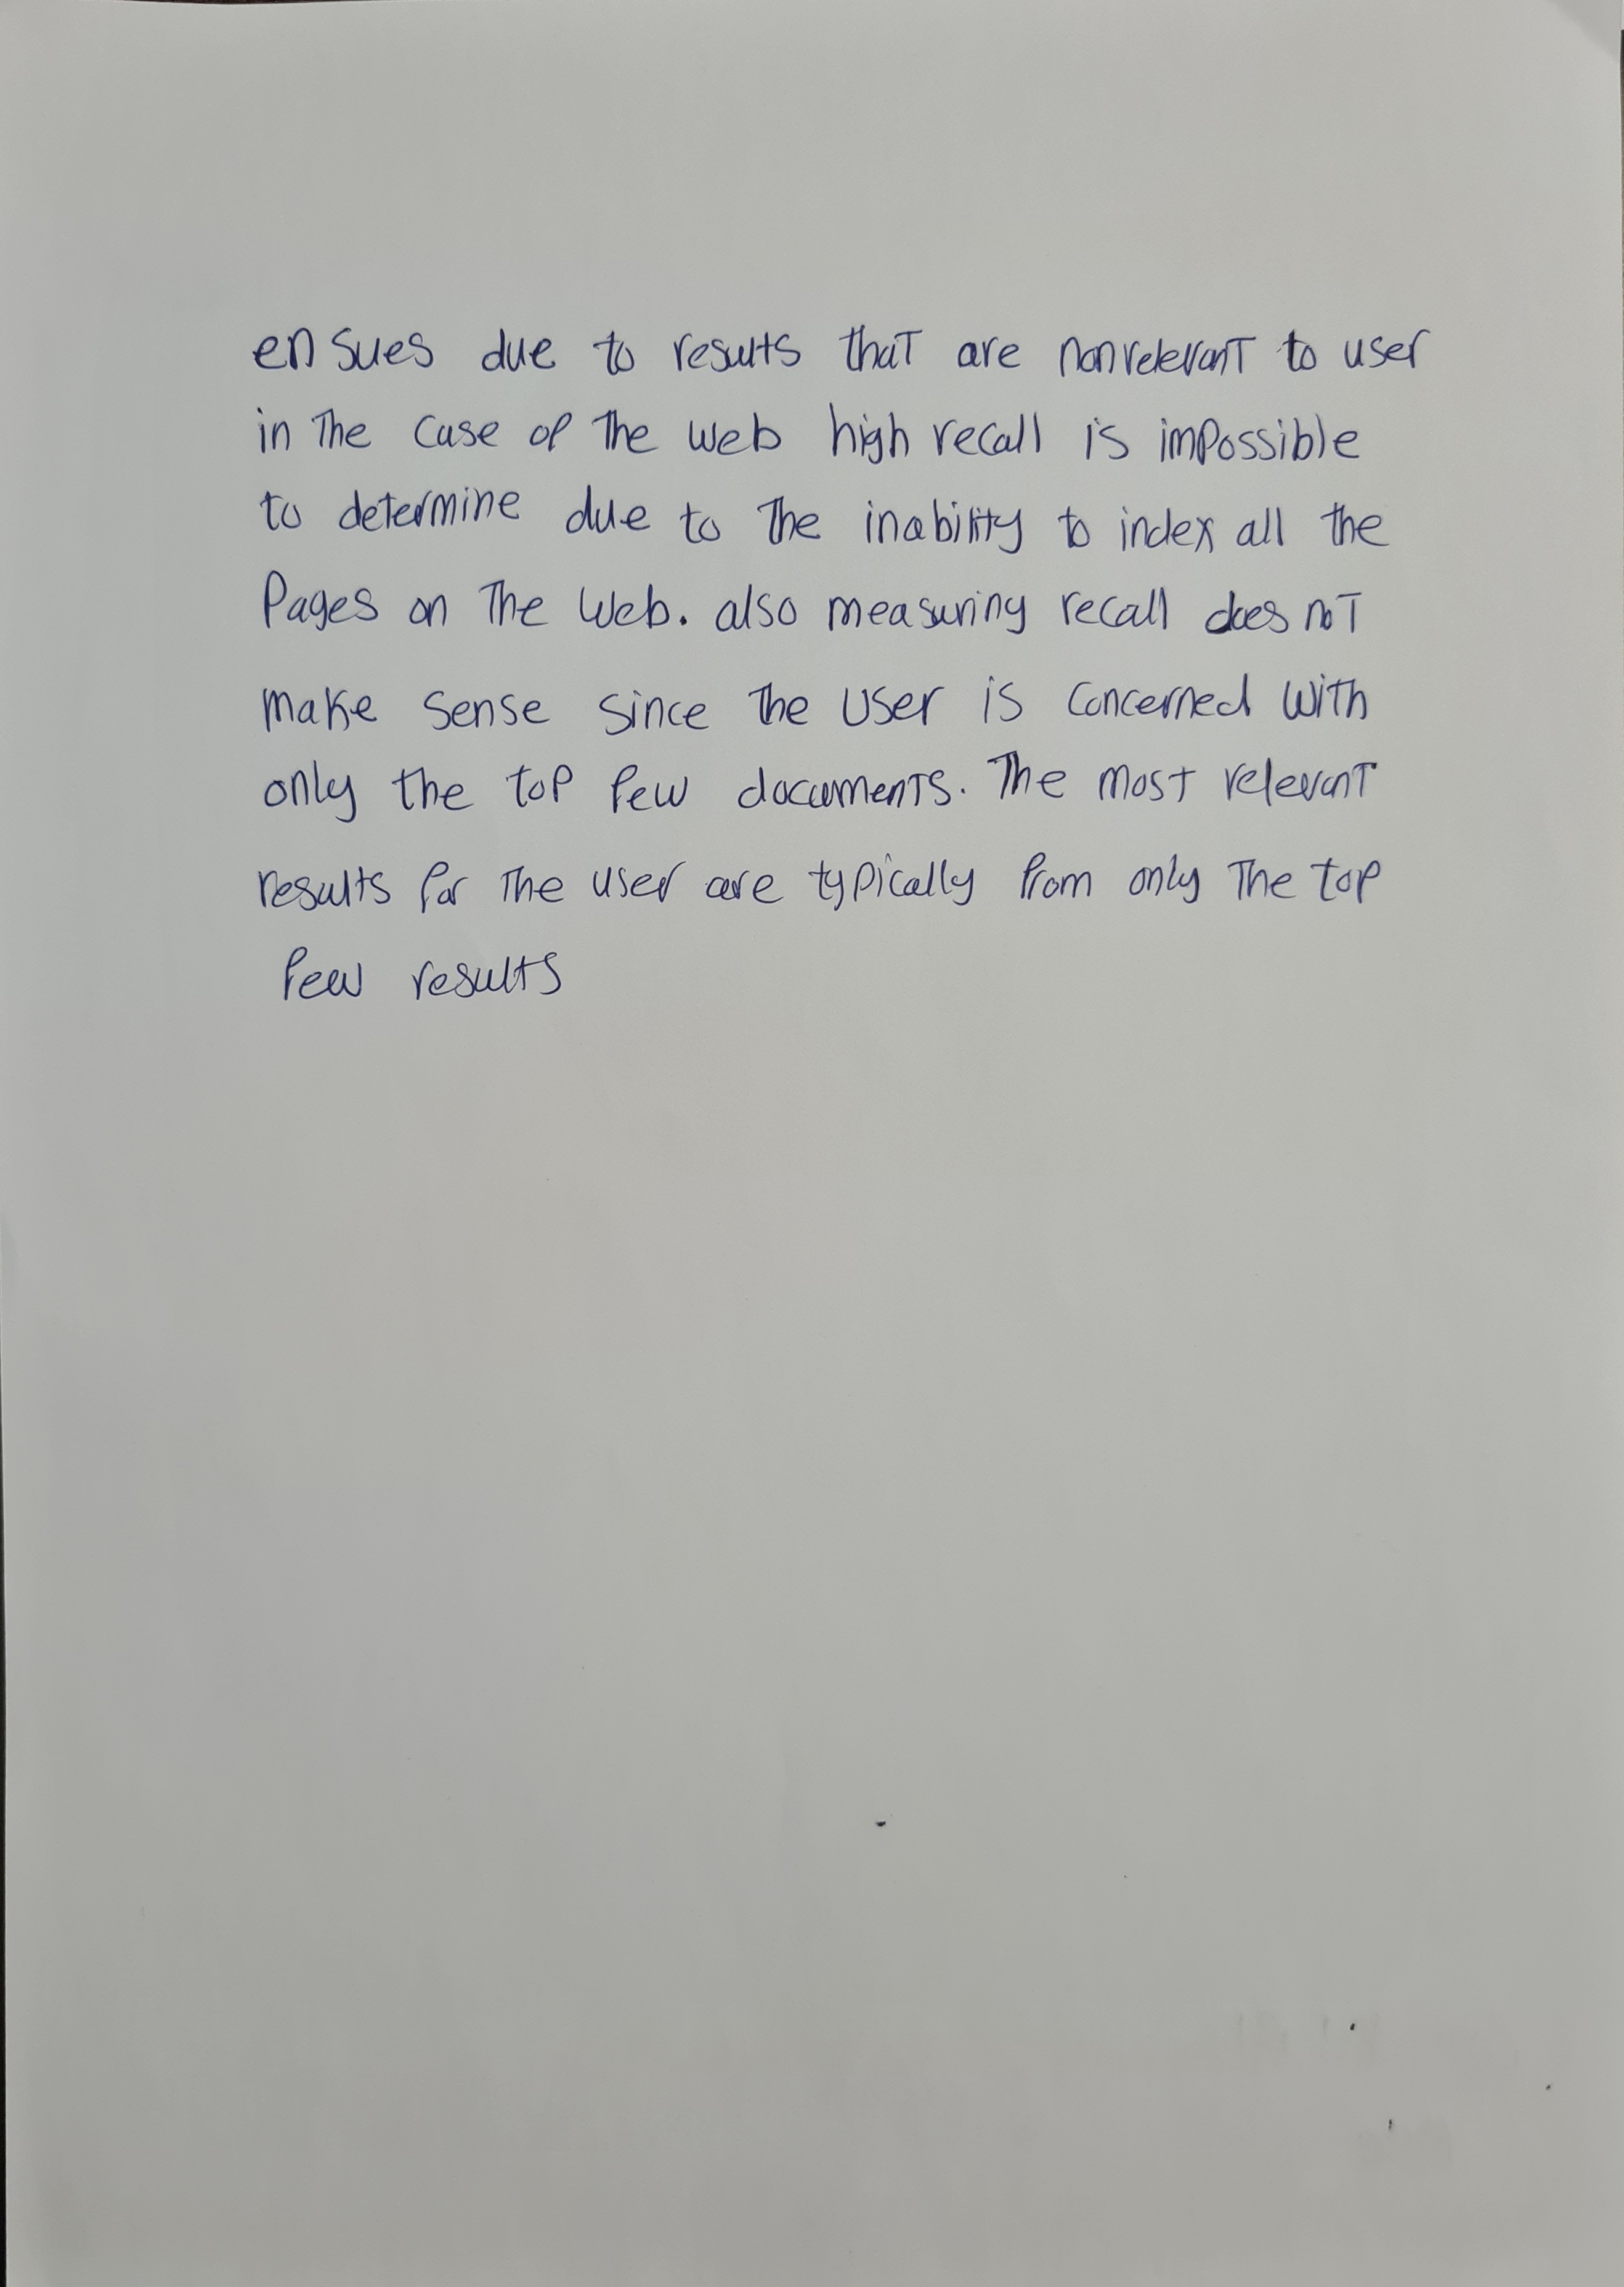 ensues due to results that are nonrelevant to user
in The case of The web high recall is impossible
to determine due to The inability to index all the
Pages on The Web. also measuring recall does not
make sense since The user is concerned with
only the top few documents. The most relevant
results for The user are typically from only The top
few results